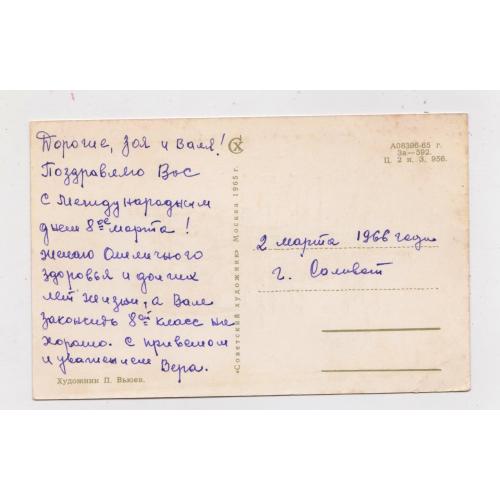 Дорогие, Зоя и Валя!
Поздравляю Вас
с Международным
днем 8ое марта!
Желаю Отличного
здоровья и долгих
лет жизни, а Вале
закончить 8ой класс на
хорошо. С приветом
и уважением Вера.
Художник П. Вьюев.
«Советский художник» Москва 1965 г.
А08396-65 г.
Зн—592.
Ц. 2 к. З. 956.
2 марта 1966 года
г.